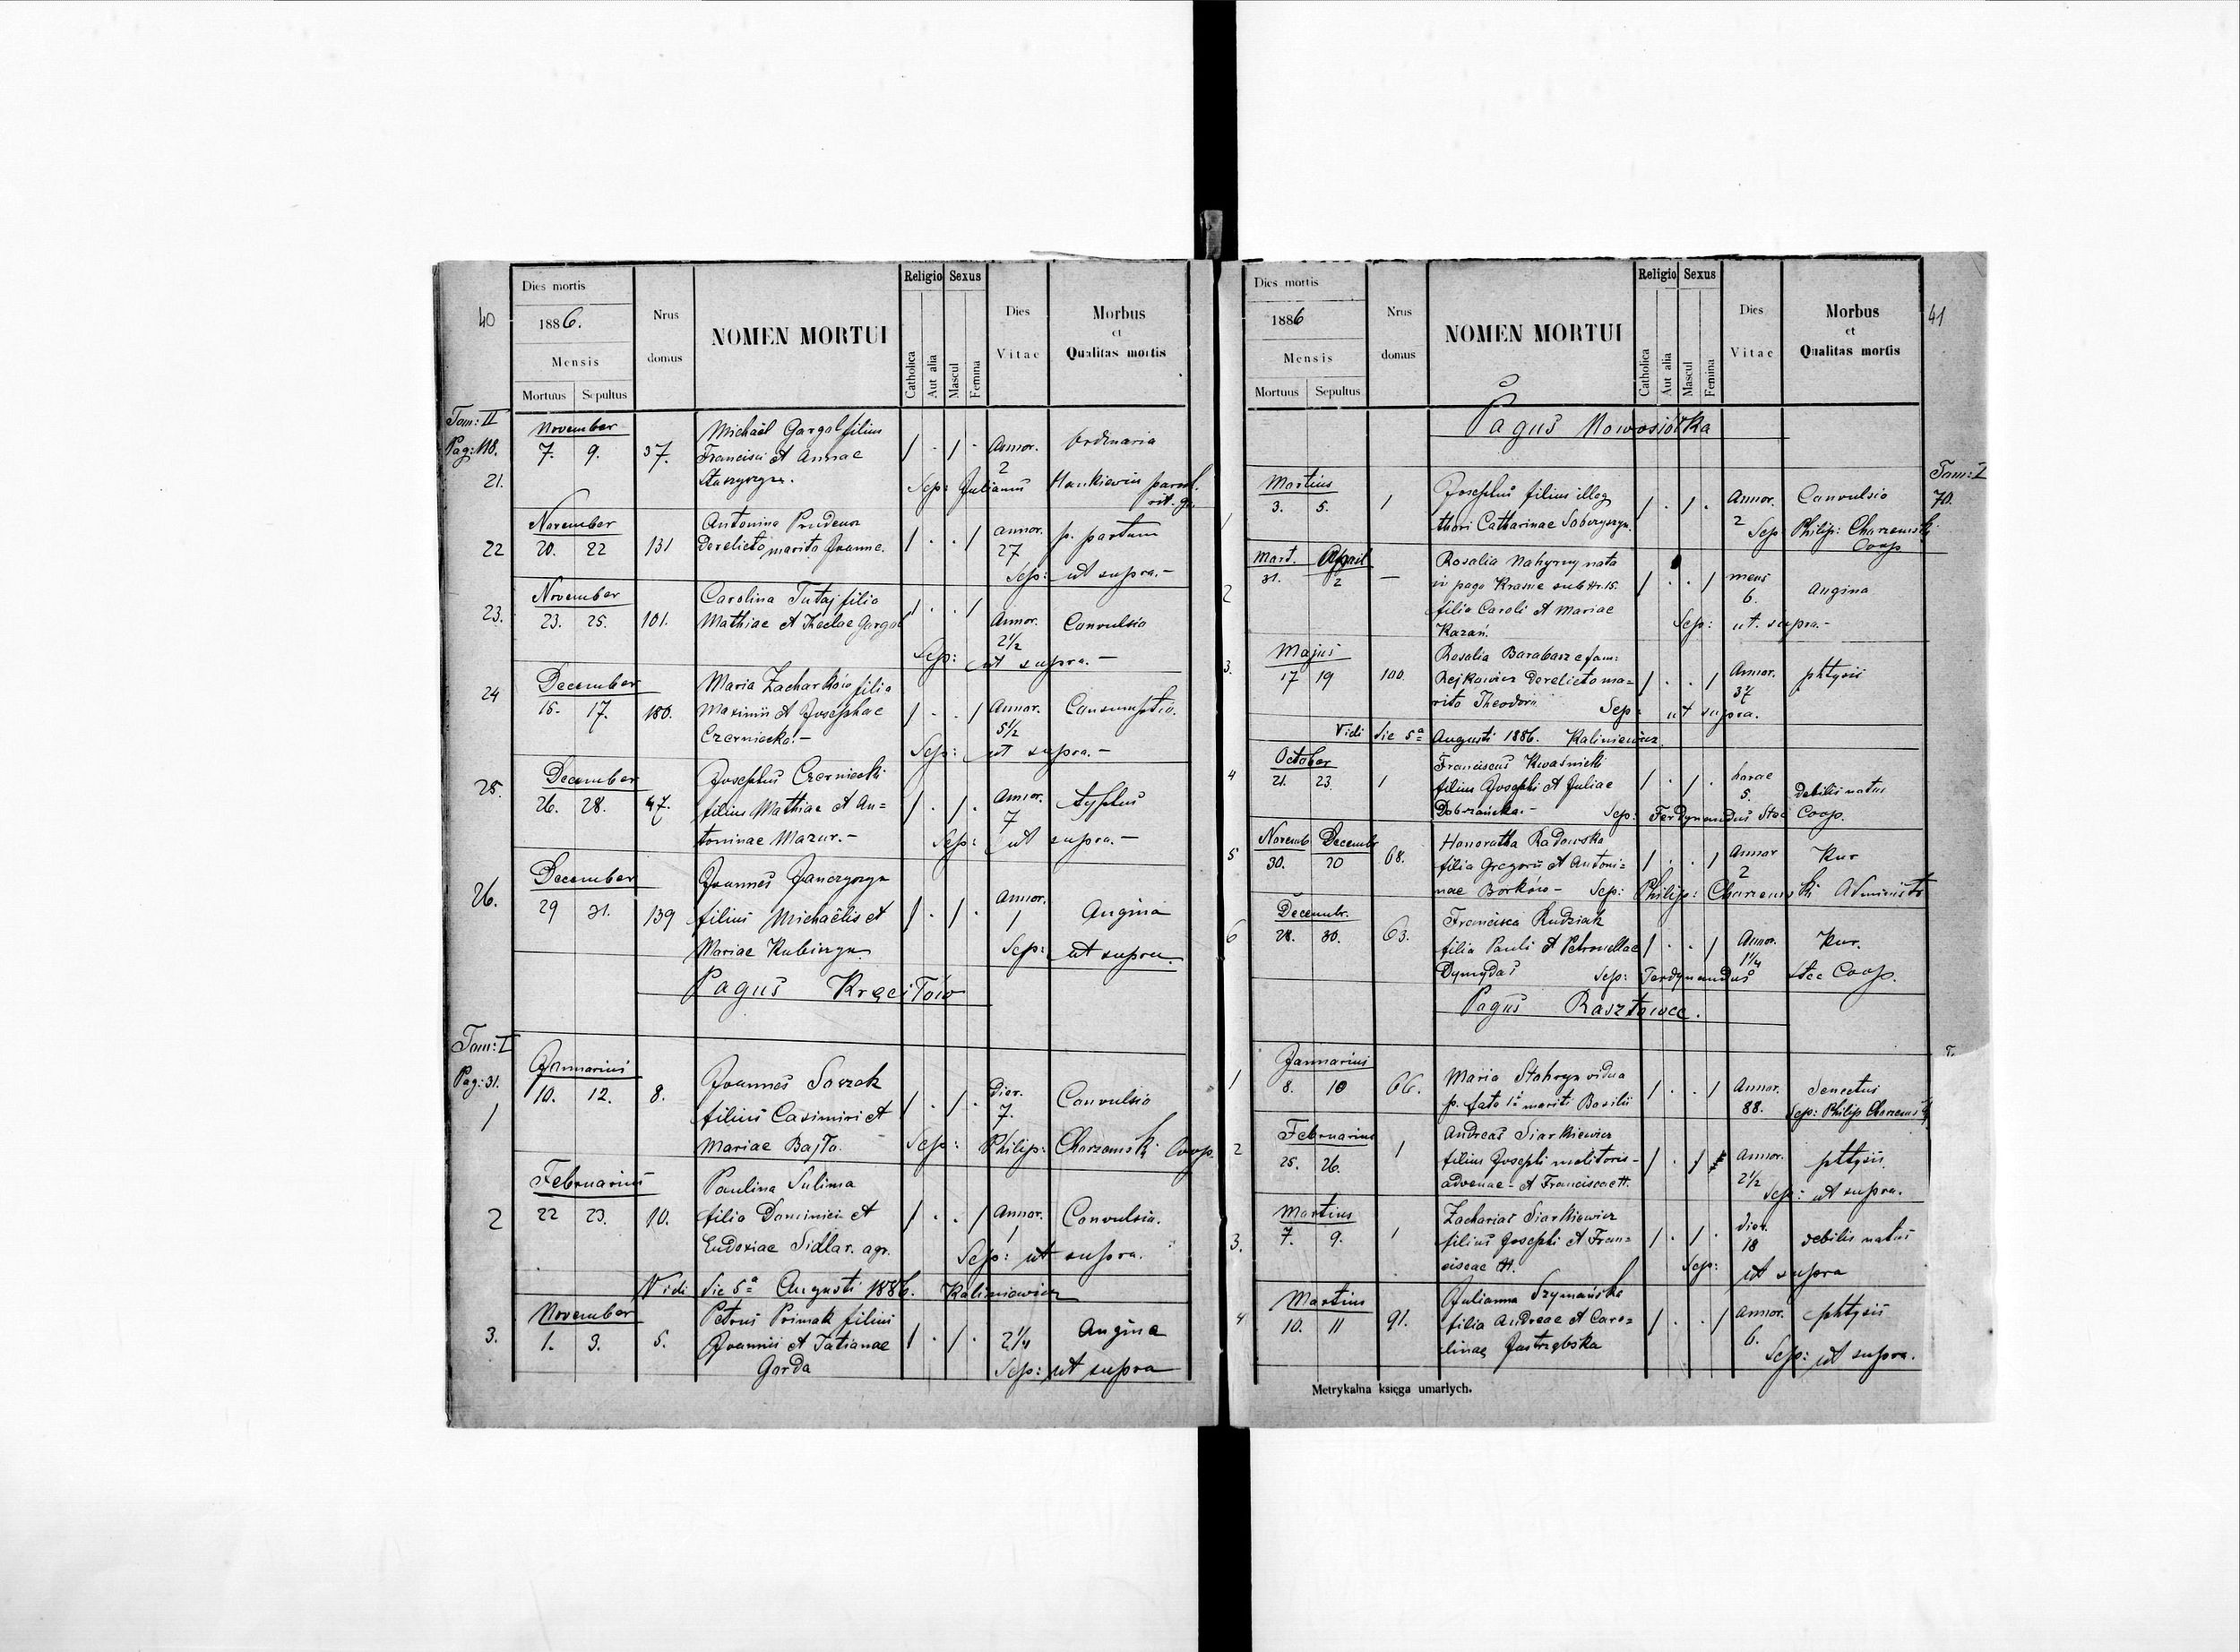 40
Dies mortis
1886.
Mensis
Mortuus Sepultus
Nrus domus
NOMEN MORTUI
Religio Sexus
Catholica
Aut alia
Mascul
Femina
Dies Vitae
Morbus et Qualitas mortis
Tom: II
Pag: 118.
November
21. 7. 9. 37. Michaël Gargol filius / . / . Annor. 2 Ordinaria
Francisci et Annae
Staszyszyn. Sep: Julianus Hankiewicz paroch. rit. gr.
November
22 20. 22 131 Antonina Prudeus / . . / annor. 27 p. partum
Derelicto marito Joanne.
Sep: ut supra.-
November
23. 23. 25. 101. Carolina Tutaj filia / . . / Annor. 2 1/2 Convulsio
Mathiae et Theclae Gargol
Sep: ut supra.-
December
24 15. 17. 180. Maria Zacharków filia / . . / Annor. 5 1/2 Consumptio.
Maximii et Josephae
Czerniecka.-
Sep: ut supra.-
December
25. 26. 28. 47. Josephus Czerniecki / . / . Annor. 7 typhus
filius Mathiae et An=
toninae Mazur.-
Sep: ut supra.-
December
26. 29 31. 139 Joannes Janczyszyn / . / . Annor. 1 Angina
filius Michaëlis et
Mariae Kubiszyn.
Sep: ut supra.
Pagus Kręciłów
Tom: I
Pag: 31.
Januarius
1 10. 12. 8. Joannes Soszak / . / . Dier. 7. Convulsio
filius Casimiri et
Mariae Bajło.
Sep: Philip: Charzewski Coop.
Februarius
2 22 23. 10. Paulina Sulima / . . / Annor. 1 Convulsio.
filia Dominici et
Eudoxiae Sidlar. agr.
Sep: ut supra.
Vidi die 5a Augusti 1886. Kaliniewicz
November
3. 1. 3. 5. Petrus Primak filius / . / . 2 1/4 Angina
Joannis et Tatianae
Gorda
Sep: ut supra
41
Dies mortis
1886
Mensis
Mortuus Sepultus
Nrus domus
NOMEN MORTUI
Religio Sexus
Catholica
Aut alia
Mascul
Femina
Dies Vitae
Morbus et Qualitas mortis
Pagus Nowosiółka
Tom: I
70.
Martius
1 3. 5. 1 Josephus filius illeg. / . / . Annor. 2 Convulsio
thori Catharinae Soboszyn.
Sep Philip: Charzewski Coop
Mart. April
2 31. 2 — Rosalia Nahyrny nata / . . / mens 6. Angina
in pago Krasne sub Nr. 15.
filia Caroli et Mariae
Kazań.
Sep: ut. supra.-
Majus
3. 17 19 100. Rosalia Barabasz e fam: / . . / Annor. 37 phtysis
Rejkowicz Derelicto ma=
rito Theodoro.
Sep: ut supra.
Vidi die 5a Augusti 1886. Kaliniewicz.
October
4 21. 23. 1 Franciscus Kwaśnicki / . / . horae 5. Debilis natus
filius Josephi et Juliae
Dobrzańska.-
Sep: Ferdynandus Stec Coop.
Novemb Decembr
5 30. 20 68. Honoratha Radowska / . . / Annor 2 Kur
filia Gregorii et Antoni=
nae Borków- Sep: Philip: Charzewski Administr
Decembr.
6 28. 30. 63. Francisca Rudziak / . . / Annor. 1 1/4 Kur.
filia Pauli et Petronellae
Dymydas Sep: Ferdynandus Stec Coop.
Pagus Rasztowce.
Januarius
1 8. 10 66. Maria Stohryn vidua / . . / Annor. 88. Senectus
p. fato 1i mariti Basilii
Sep: Philip Charzewski
Februarius
2 25. 26. 1 Andreas Siarkiewicz / . / Annor. 2 1/2 phtysis.
filius Josephi molitoris-
advenae- et Franciscae H.
Sep: ut supra.
Martius
3. 7. 9. 1 Zacharias Siarkiewicz / . / . Dier. 18 debilis natus
filius Josephi et Fran=
ciscae H.
Sep: ut supra
Martius
4 10. 11 91. Julianna Szymańska / . . / Annor. 6. phtysis
filia Andreae et Caro=
linae Jastrzębska
Sep: ut supra.
Metrykalna księga umarłych.